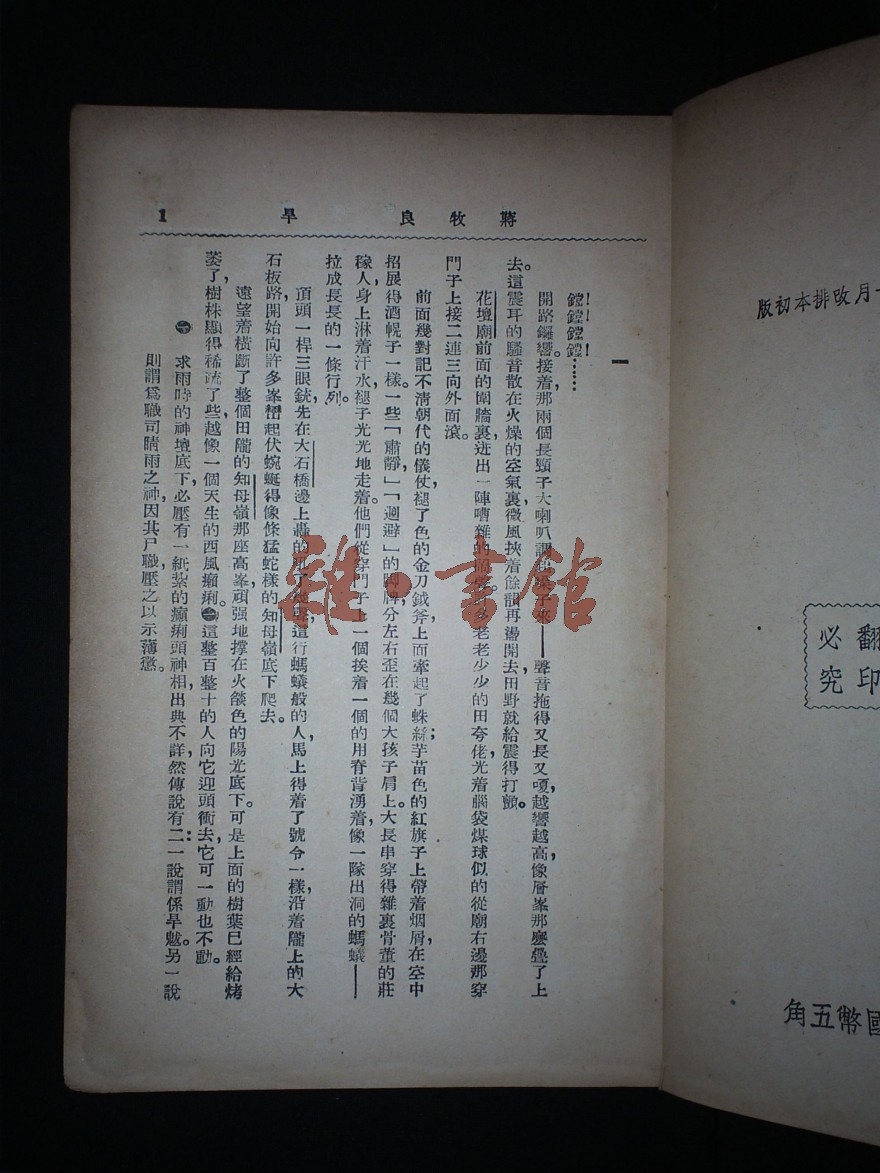 蔣牧良 旱 1
一
鏜！鏜！鏜鏜！……
開路鑼響。接着，那兩個長頸子大喇叭調和嗓子來——聲音拖得又長又嗄，越響越高，像層峯那麽疊了上
去。這震耳的騷音散在火燥的空氣裏，微風挾着餘韻再盪開去，田野就給震得打顫。
花壇廟前面的圍牆裏，迸出一陣嘈雜的 許多老老少少的田夸佬，光着腦袋，煤球似的從廟右邊那穿
門子上接二連三向外面滾。
前面幾對記不清朝代的儀仗，褪了色的金刀鉞斧上面牽起了蛛絲；芋苗色的紅旗子上帶着烟屑，在空中
招展得酒幌子一樣。一些「肅靜」「迴避」的 牌，分左右歪在幾個大孩子肩上。大長串穿得雜裏骨董的莊
稼人，身上淋着汗水，褪子光光地走着。他們從穿門子上一個挨着一個的用脊背湧着，像一隊出洞的螞蟻——
拉成長長的一條行列。
頂頭一桿三眼銃，先在大石橋邊上轟的 了幾 這行螞蟻般的人，馬上得着了號令一樣，沿着隴上的大
石板路，開始向許多峯巒起伏，蜿蜒得像條猛蛇樣的知母嶺底下爬去。
遠望着橫斷了整個田隴的知母嶺那座高峯，頑强地撑在火燄色的陽光底下。可是上面的樹葉已經給烤
萎了，樹株顯得稀疏了些，越像一個天生的西風癩痢。㊀這整百整十的人向它迎頭衝去，它可一動也不動。
㊀ 求雨時的神壇底下，必壓有一紙紮的癩痢頭神相，出典不詳，然傳說有二：一說謂係旱魃。另一說
則謂爲職司睛雨之神，因其尸職，壓之以示薄懲。
月改排本初版
翻印
必究
國幣五角
雜·書館